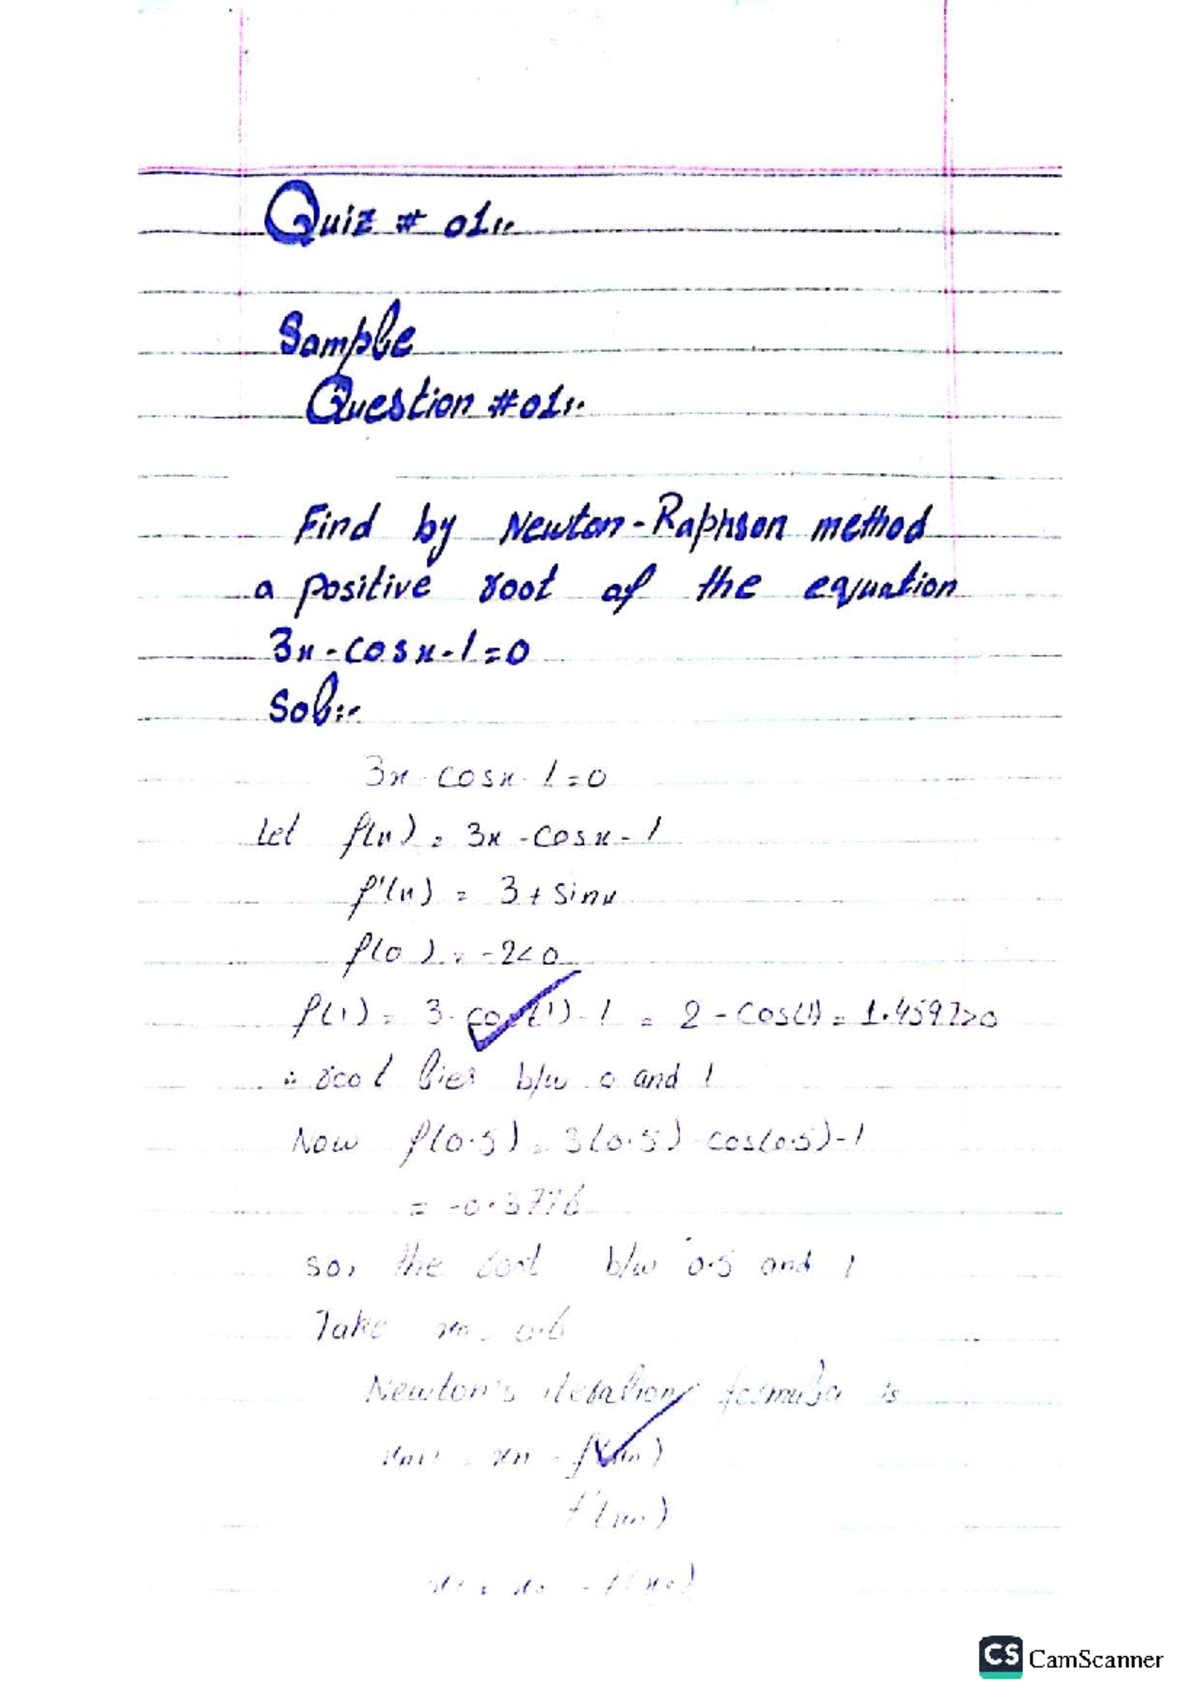 Quiz # 01:-
Sample
Question #01:-
Find by Newton-Raphson method
a positive root of the equation
3x-cosx-1=0
Sol:-
3x-cosx-1=0
Let f(x) = 3x-cosx-1
f'(x) = 3+sinx
f(0) = -2<0
f(1) = 3-cos(1)-1 = 2-cos(1) = 1.4597>0
∴ root lies b/w 0 and 1
Now f(0.5) = 3(0.5)-cos(0.5)-1
= -0.3776
so, the root b/w 0.5 and 1
Take x0 = 0.6
Newton's iteration formula is
xn+1 = xn - f(xn)
f'(xn)
x1 = x0 - f(x0)
CS CamScanner